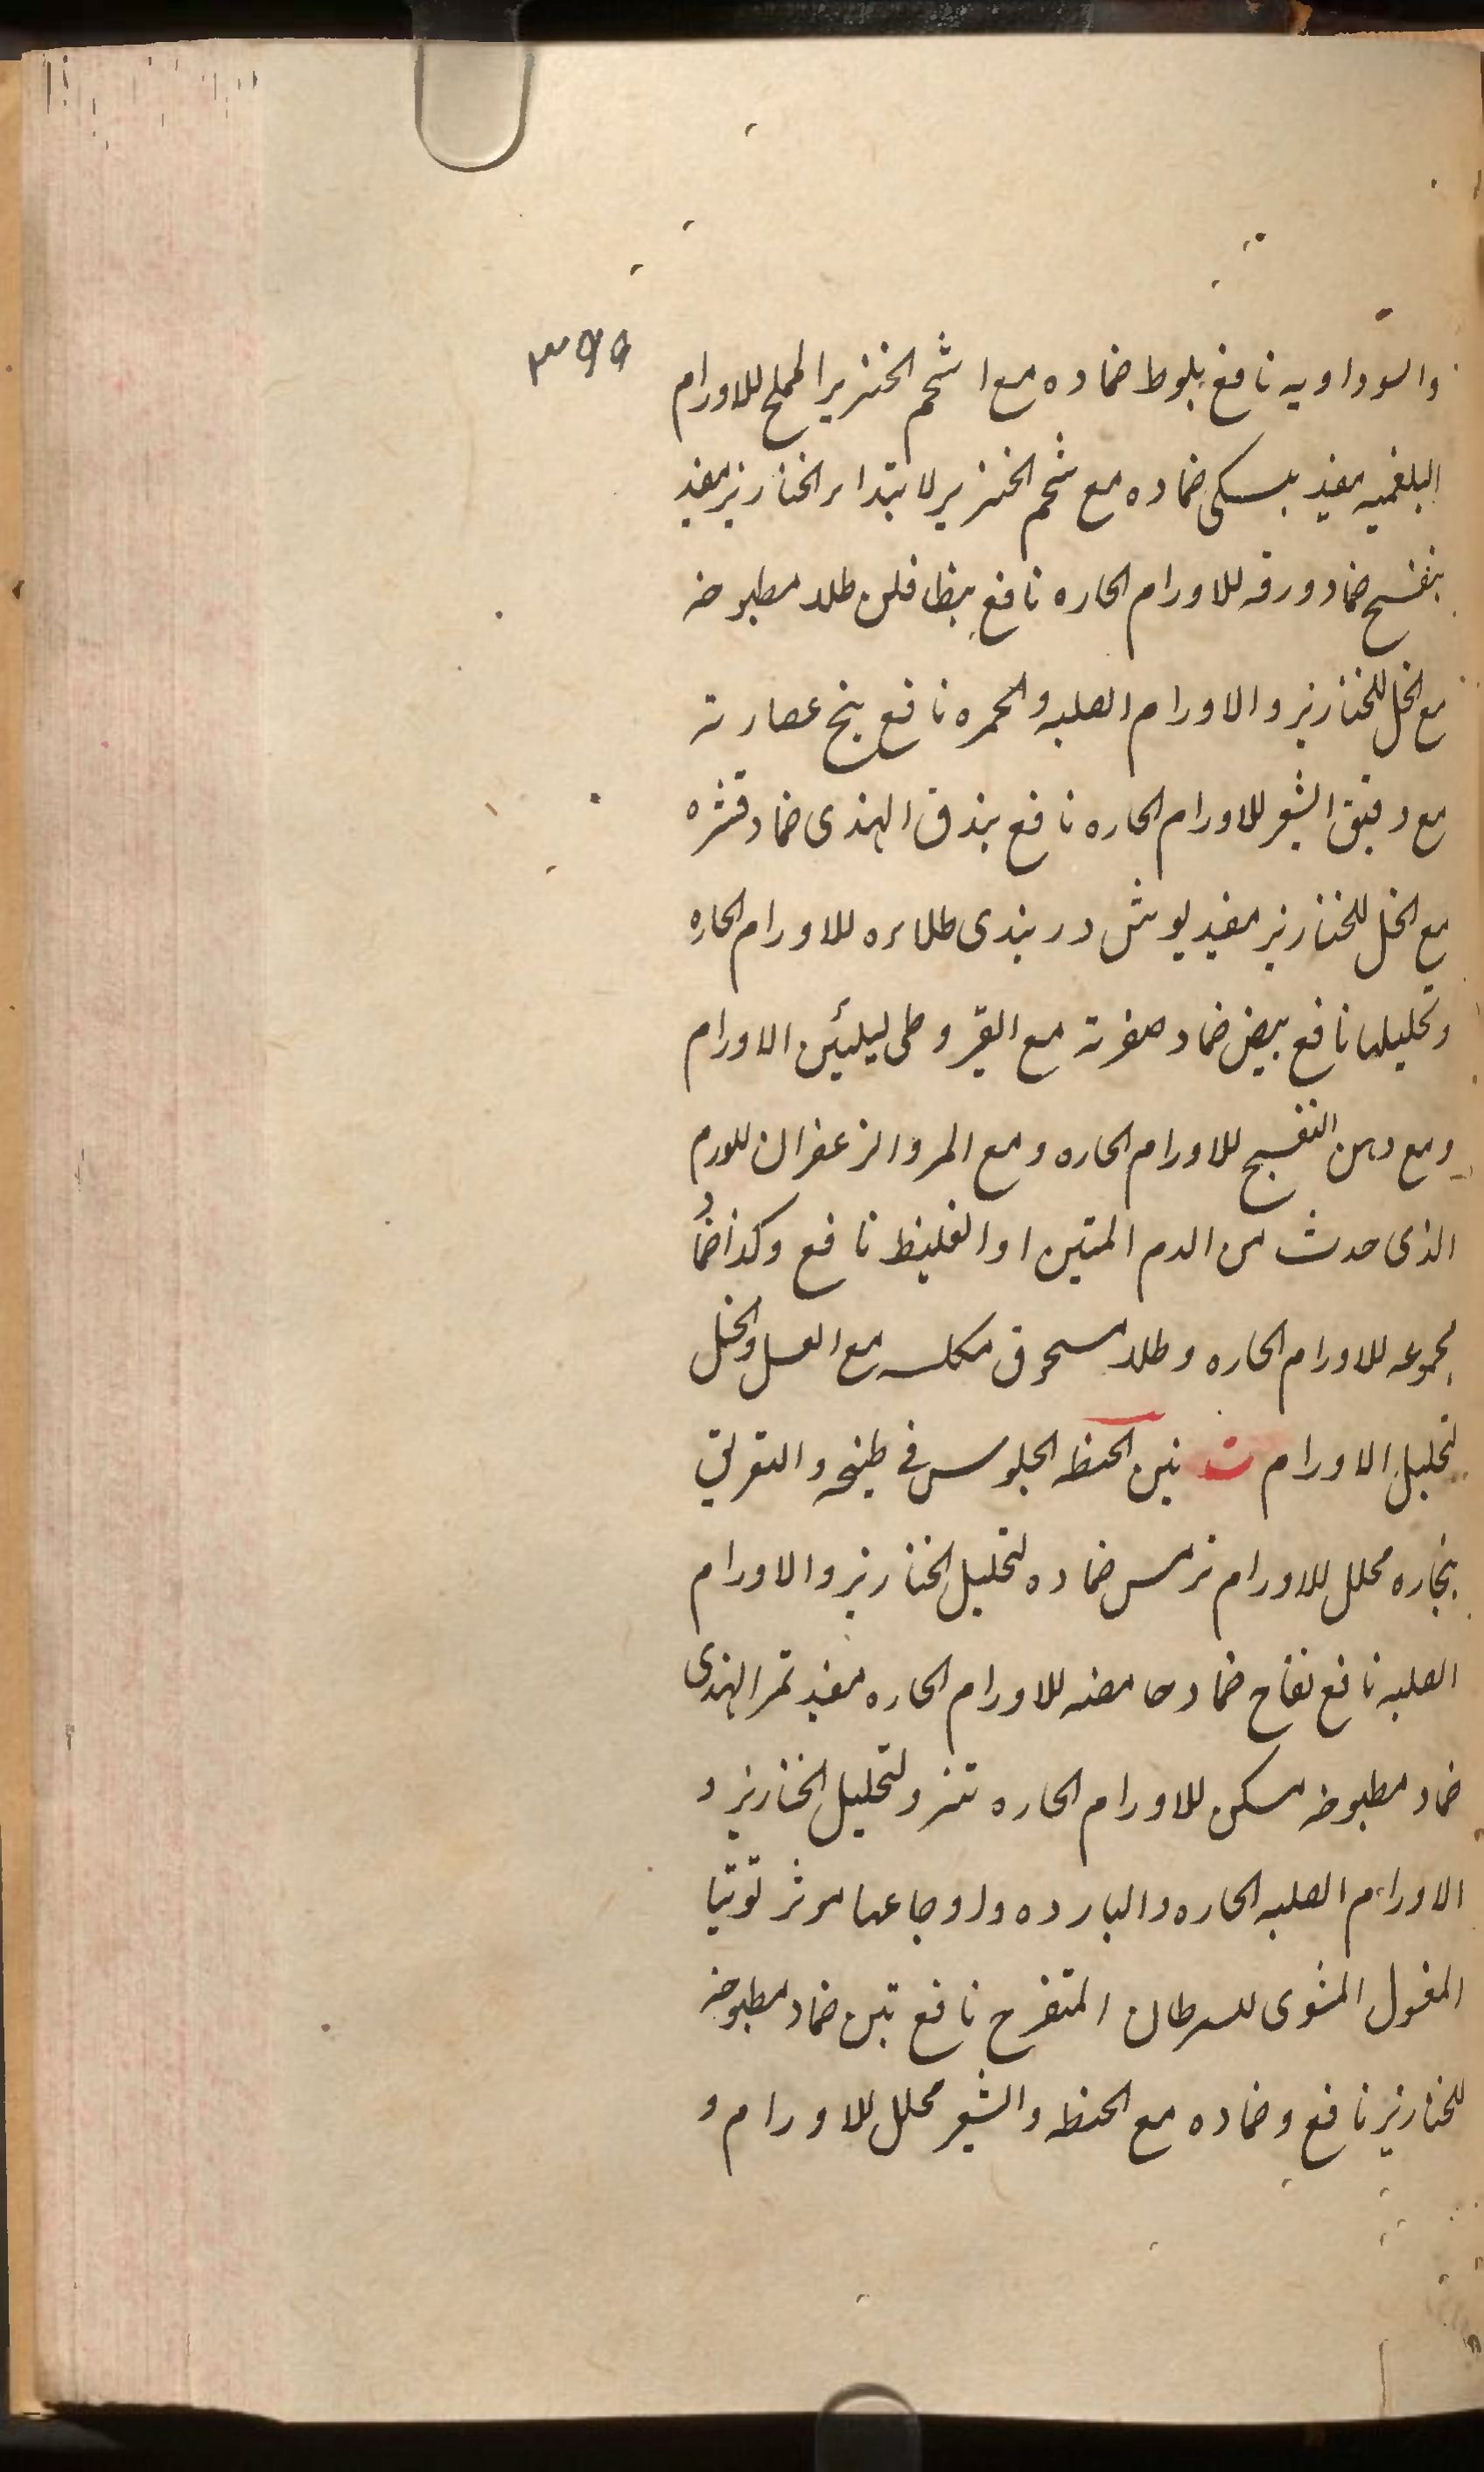 ٣٩٩
والسوداويه نافع بلوط ضماده مع اشحم الخنزير المملح للاورام
البلغميه مفيد بسكى ضماده مع شحم الخنزير لابتداء الخنازير مفيد
بنفسج ضماد ورقه للاورام الحاره نافع بظافلن طلاء مطبوخه
مع الخل للخنازير والاورام الصلبه والحمره نافع بنج عصارته
مع دقيق الشعير للاورام الحاره نافع بندق الهندى ضماد قشره
مع الخل للخنازير مفيد بوش دربندى طلاءه للاورام الحاره
وتحليلها نافع بيض ضماد صفرته مع القيروطى لتليين الاورام
ومع دهن البنفسج للاورام الحاره ومع المر والزعفران للورم
الذى حدث من الدم المتين او الغليظ نافع وكذا ضماد
مجموعه للاورام الحاره وطلاء مسحوق مكلسه مع العسل والخل
لتحليل الاورام ت تبن الحنطه الجلوس فى طبيخه والتعريق
بخاره محلل للاورام ترمس ضماده لتحليل الخنازير والاورام
الصلبه نافع تفاح ضماد حامضه للاورام الحاره مفيد تمر الهندى
ضماد مطبوخه مسكن للاورام الحاره لتحليل الخنازير و
الاورام الصلبه الحاره والبارده ولاوجاعها موثر توتيا
المغسول المشوى للسرطان المتقرح نافع تين ضماد مطبوخه
للخنازير نافع وضماده مع الحنطه والشعير محلل للاورام و